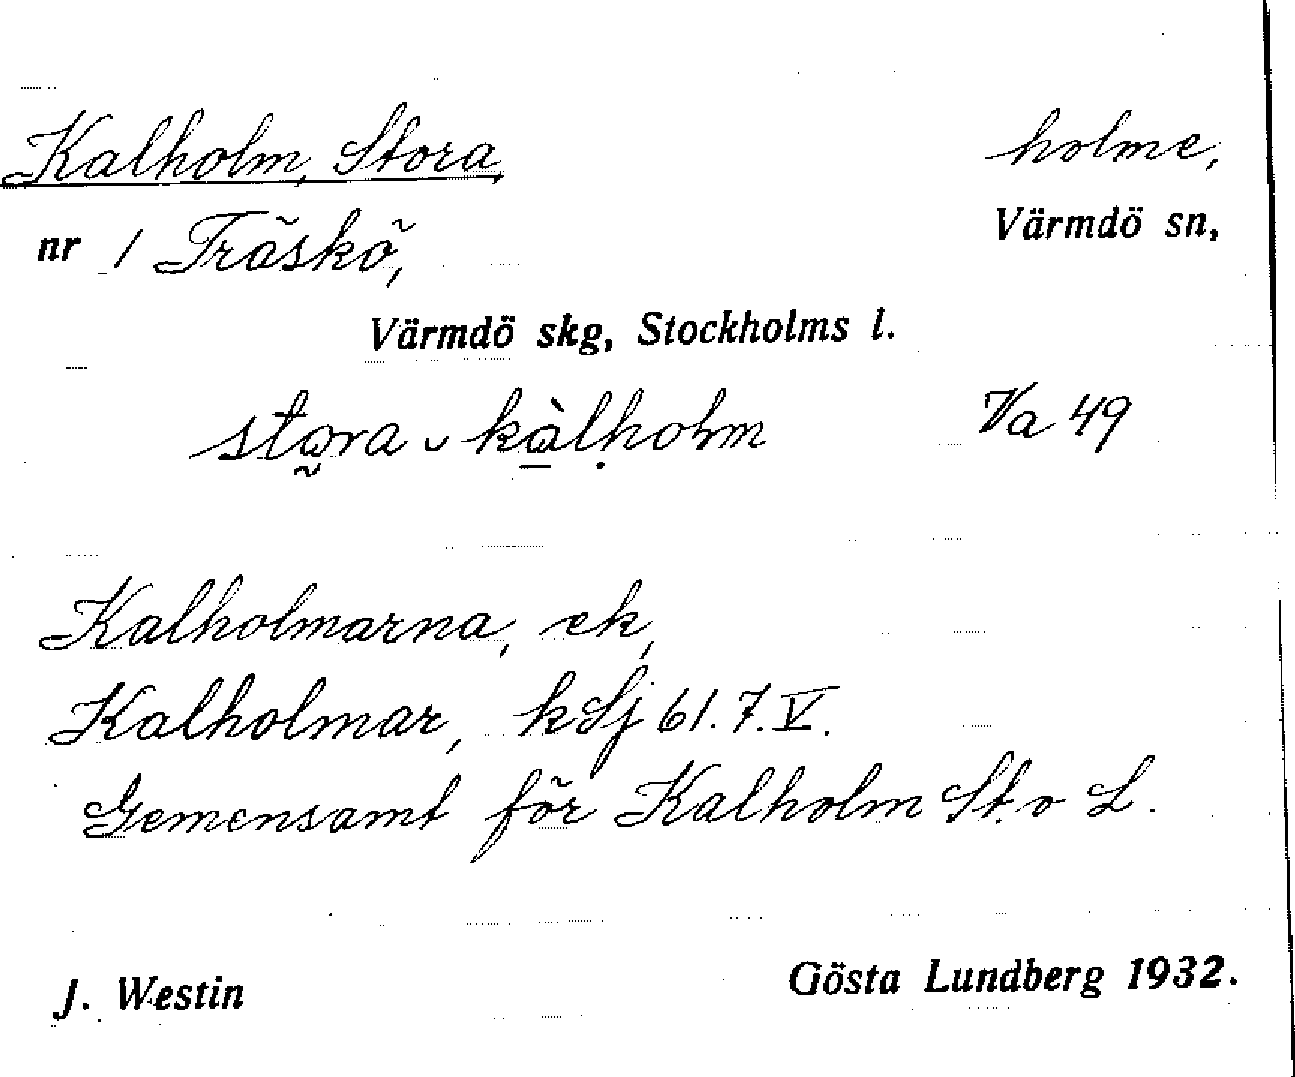 Kalholm, Stora, holme,
nr 1 Träskö, Värmdö sn,
Värmdö skg, Stockholms l.
sto̰ra ᴗ kà̱lḥolm Va 49
Kalholmarna, ek,
Kalholmar, kSj 61.7.V.
Gemensamt för Kalholm St. o L.
J. Westin Gösta Lundberg 1932.